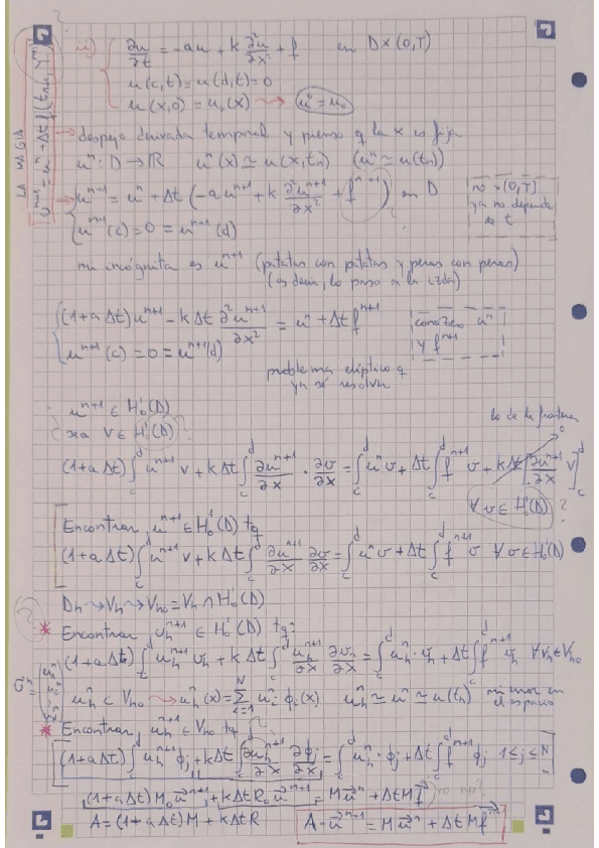 ii) { ∂u/∂t = -au + k ∂²u/∂x² + f en D×(0,T)
u(c,t) = u(d,t) = 0
u(x,0) = u₀(x) → u⁰ = u₀
→ despejo derivada temporal y pienso q la x es fija
uⁿ: D → ℝ uⁿ(x) ≃ u(x,tₙ) (uⁿ ≃ u(tₙ))
LA MAGIA
→ { uⁿ⁺¹ = uⁿ + Δt (-a uⁿ⁺¹ + k ∂²uⁿ⁺¹/∂x² + fⁿ⁺¹) en D
uⁿ⁺¹(c) = 0 = uⁿ⁺¹(d)
no x(0,T]
ya no depende
de t
mi incógnita es uⁿ⁺¹ (patatas con patatas y peras con peras)
(es decir, lo paso a la izda)
{ (1+aΔt)uⁿ⁺¹ - kΔt ∂²uⁿ⁺¹/∂x² = uⁿ + Δt fⁿ⁺¹
uⁿ⁺¹(c) = 0 = uⁿ⁺¹(d)
conozco uⁿ
y fⁿ⁺¹
problema elíptico q
ya sé resolver
uⁿ⁺¹ ∈ H₀¹(D)
sea v ∈ H₀¹(D)?
lo de la frontera
(1+aΔt) ∫_c^d uⁿ⁺¹ v + kΔt ∫_c^d ∂uⁿ⁺¹/∂x · ∂v/∂x = ∫_c^d uⁿ v + Δt ∫_c^d fⁿ⁺¹ v + kΔt [∂uⁿ⁺¹/∂x v]_c^d → 0
∀ v ∈ H₀¹(D) ?
Encontrar uⁿ⁺¹ ∈ H₀¹(D) tq
(1+aΔt) ∫_c^d uⁿ⁺¹ v + kΔt ∫_c^d ∂uⁿ⁺¹/∂x ∂v/∂x = ∫_c^d uⁿ v + Δt ∫_c^d fⁿ⁺¹ v ∀ v ∈ H₀¹(D)
Dₕ → Vₕ → Vₕ₀ = Vₕ ∩ H₀¹(D)
* Encontrar uₕⁿ⁺¹ ∈ H₀¹(D) tq:
(1+aΔt) ∫_c^d uₕⁿ⁺¹ vₕ + kΔt ∫_c^d ∂uₕⁿ⁺¹/∂x ∂vₕ/∂x = ∫_c^d uₕⁿ · vₕ + Δt ∫_c^d fⁿ⁺¹ vₕ ∀ vₕ ∈ Vₕ₀
uₕⁿ ∈ Vₕ₀ → uₕⁿ(x) = Σ_{i=1}^N uᵢⁿ ϕᵢ(x) uₕⁿ ≃ uⁿ ≃ u(tₙ)
* Encontrar uₕⁿ⁺¹ ∈ Vₕ₀ tq
(1+aΔt) ∫_c^d uₕⁿ⁺¹ ϕⱼ + kΔt ∫_c^d ∂uₕⁿ⁺¹/∂x ∂ϕⱼ/∂x = ∫_c^d uₕⁿ · ϕⱼ + Δt ∫_c^d fⁿ⁺¹ ϕⱼ 1≤j≤N
(1+aΔt) M₀ u⃗ⁿ⁺¹ + kΔt R₀ u⃗ⁿ⁺¹ = M u⃗ⁿ + Δt M f⃗
A = (1+aΔt)M + kΔt R
A · u⃗ⁿ⁺¹ = M u⃗ⁿ + Δt M f⃗ⁿ⁺¹